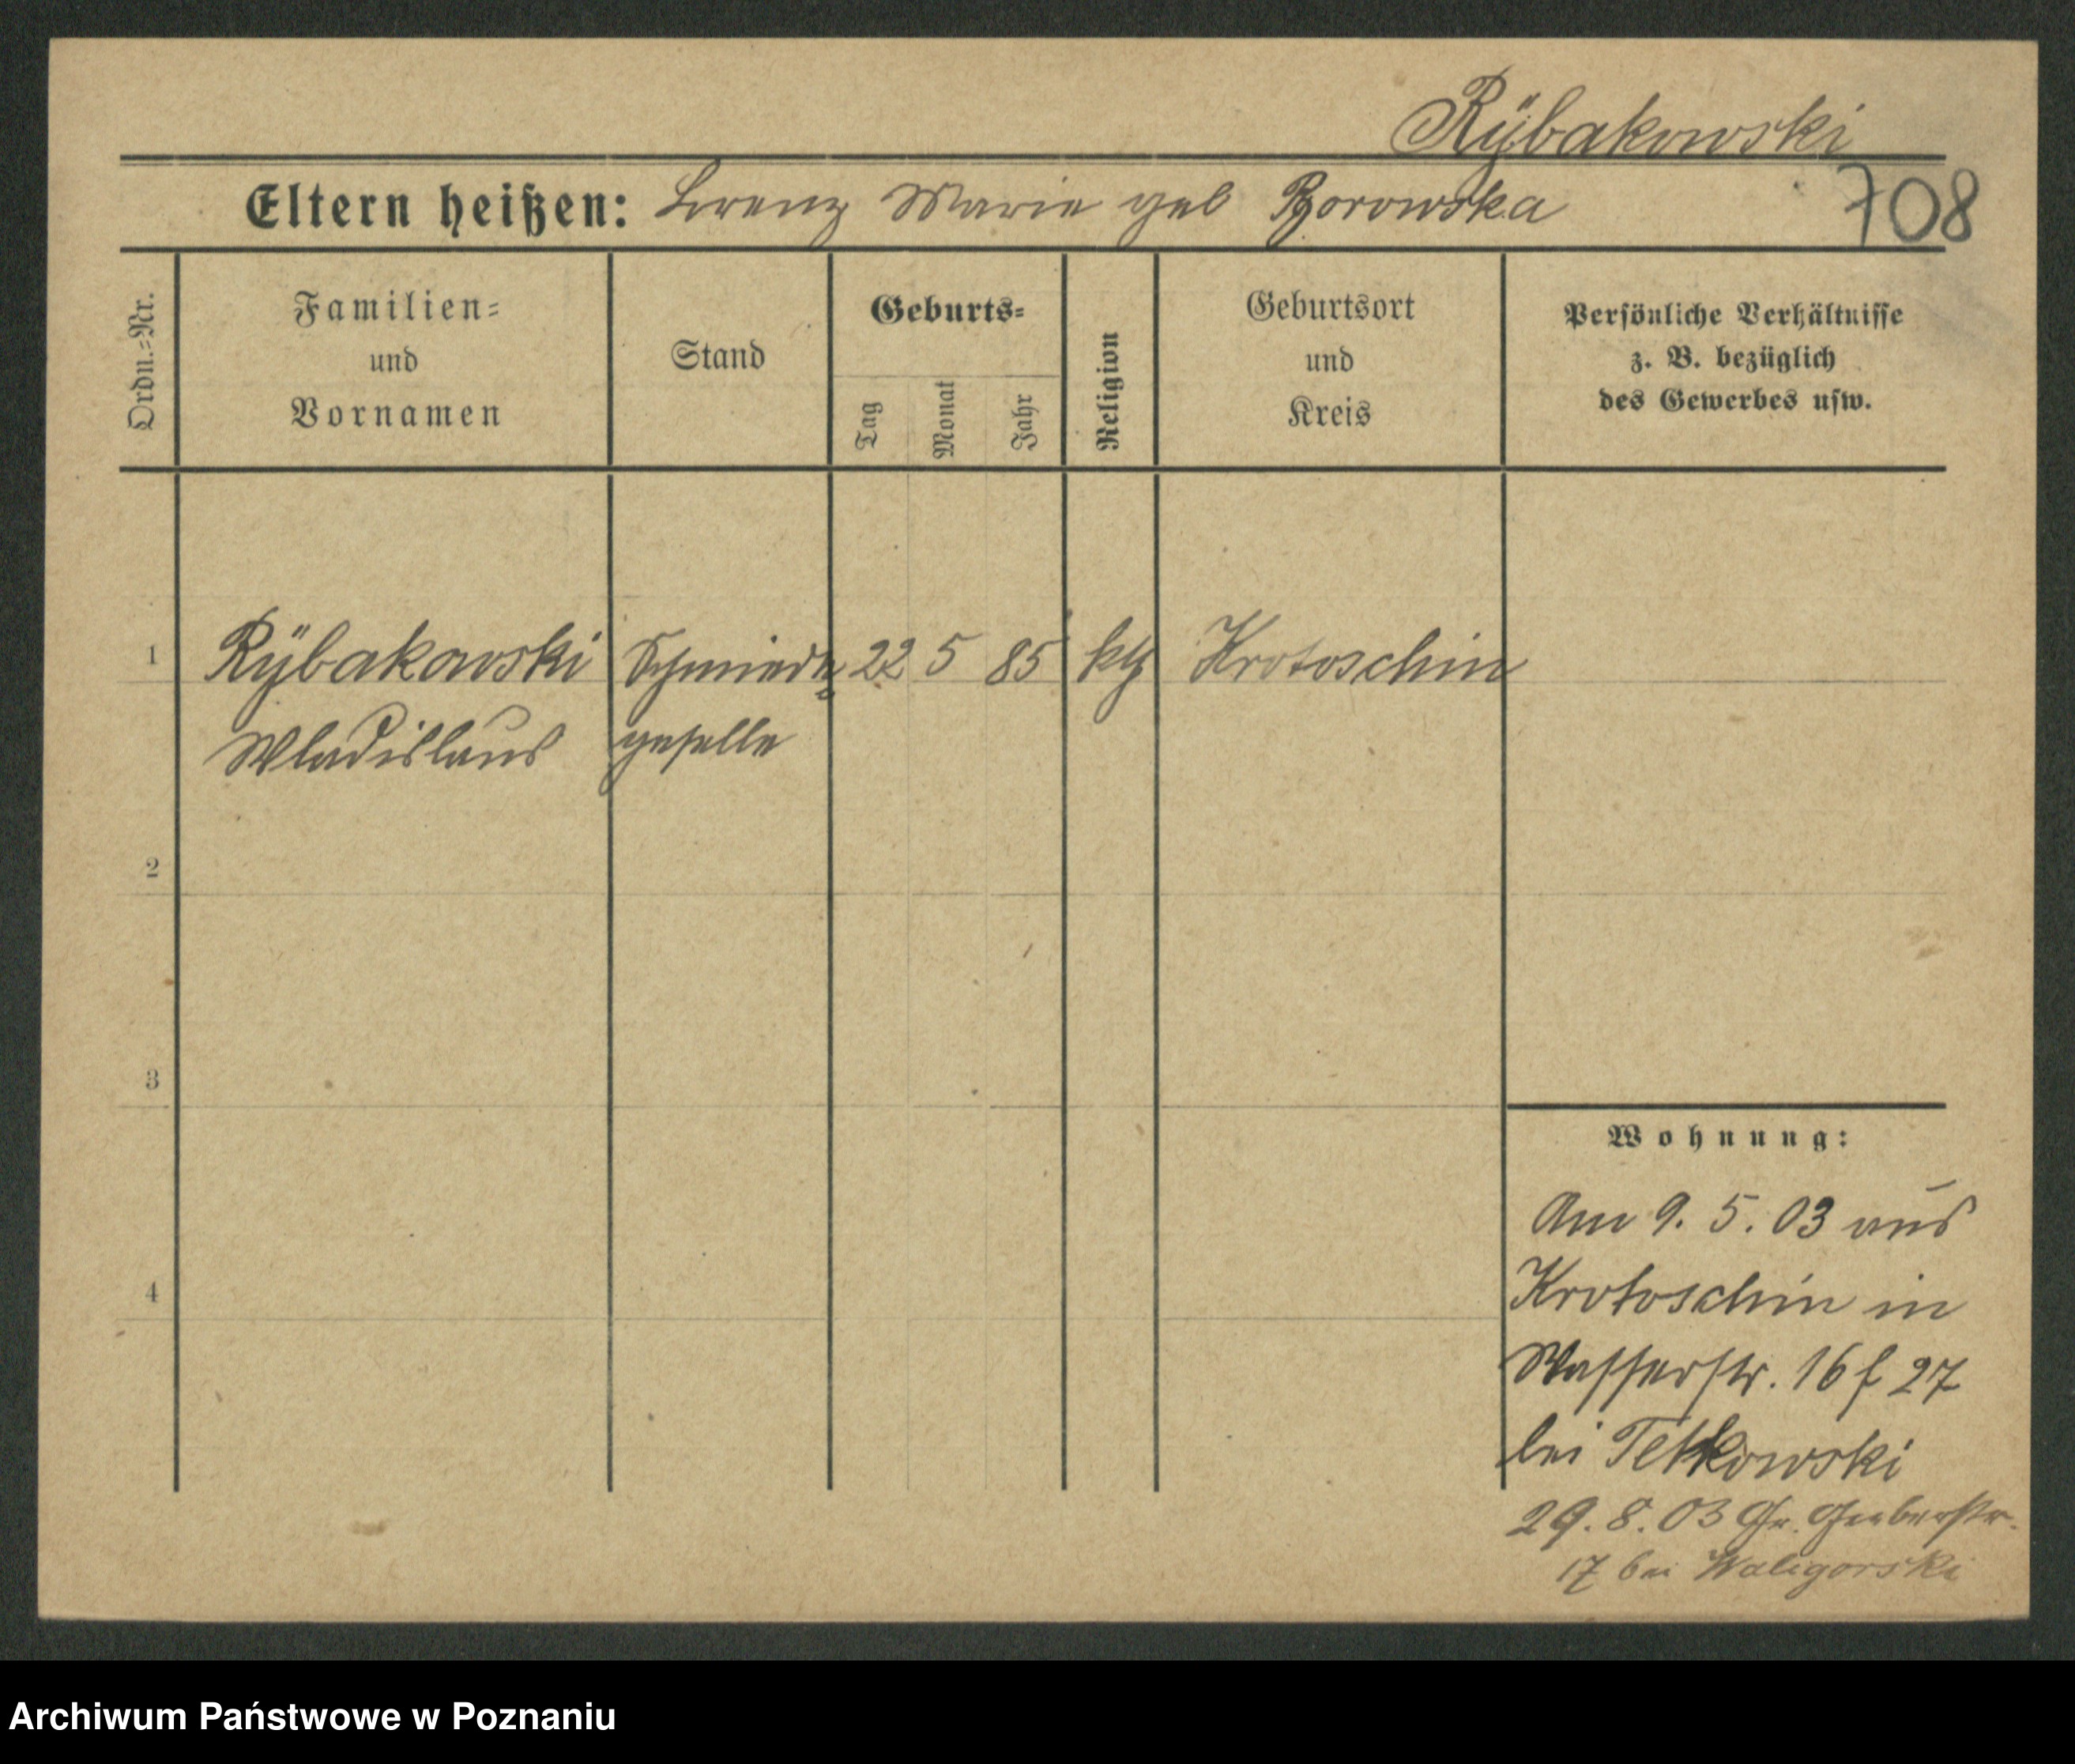 Rÿbakowski
Eltern heißen: Lorenz Marie geb Borowska 708
Ordn.=Nr.
Familien=
und
Vornamen
Stand
Geburts=
Tag
Monat
Jahr
Religion
Geburtsort
und
Kreis
Persönliche Verhältnisse
z. B. bezüglich
des Gewerbes usw.
1 Rÿbakowski Schmiede= 22 5 85 kth Krotoschin
Wladislaus geselle
2
3
4
Wohnung:
Am 9. 5. 03 aus
Krotoschin in
Wasserstr. 16 f 27
bei Tetkowski
29. 8. 03 Gr. Gerberstr.
17 bei Waligorski
Archiwum Państwowe w Poznaniu